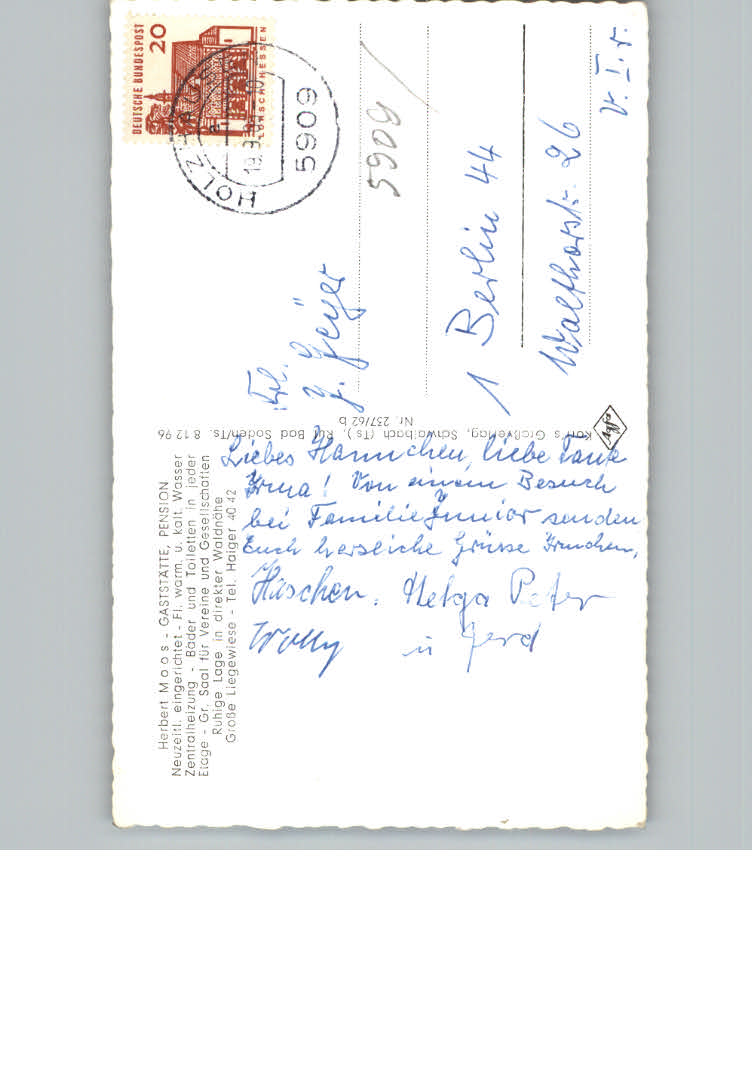 Herbert Moos - GASTSTÄTTE, PENSION
Neuzeitl. eingerichtet - Fl. warm. u. kalt. Wasser
Zentralheizung - Bäder und Toiletten in jeder
Etage - Gr. Saal für Vereine und Gesellschaften
Ruhige Lage in direkter Waldnähe
Große Liegewiese - Tel. Haiger 40 42
Liebes Hannchen, liebe Tante
Irma! Von einem Besuch
bei Familie Junior senden
Euch herzliche Grüsse Irmchen,
Häschen, Helga Peter
Wolly u Gerd
Karl's Großverlag, Schwalbach (Ts), Ruf Bad Soden/Ts. 8 12 96
Nr. 237/62 b
Agfa
DEUTSCHE BUNDESPOST
20
LORSCH/HESSEN
5909
5909
Frl.
J. Geyer
1 Berlin 44
Walthorstr. 26
v. I. r.